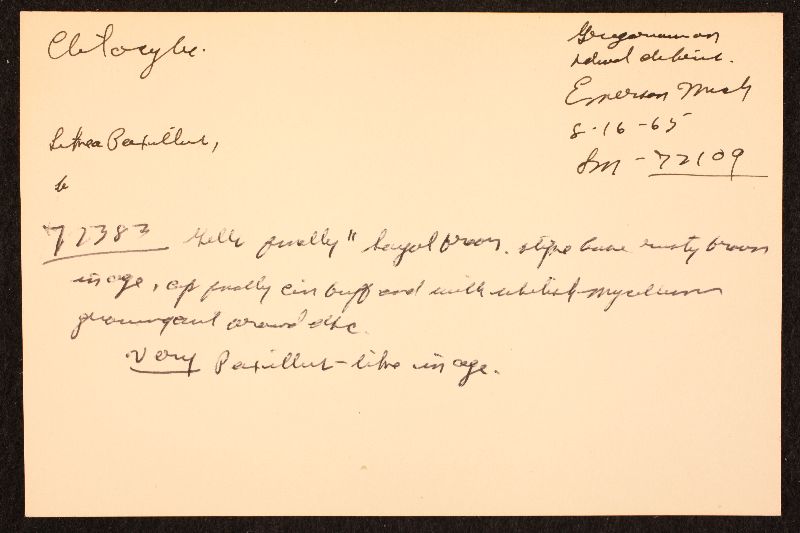 Clitocybe.
Gregarious on
wood debris.
Emerson Mich
8-16-65
Sm - 72109
Paxillus,
72383 Gills finally " sayal brown. stipe base rusty brown
in age, cap finally cin buff and with whitish mycelium
growing out around disc.
Very Paxillus-like in age.